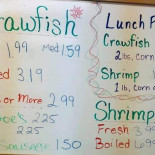 Crawfish
1.99 Med 1.59
ed 319
s or More 2.99
oe's 225
225
Sausages 1.50
Lunch
Crawfish
2 lbs, Corn
Shrimp
1 lb, Corn
Shrimp
Fresh 3.99
Boiled